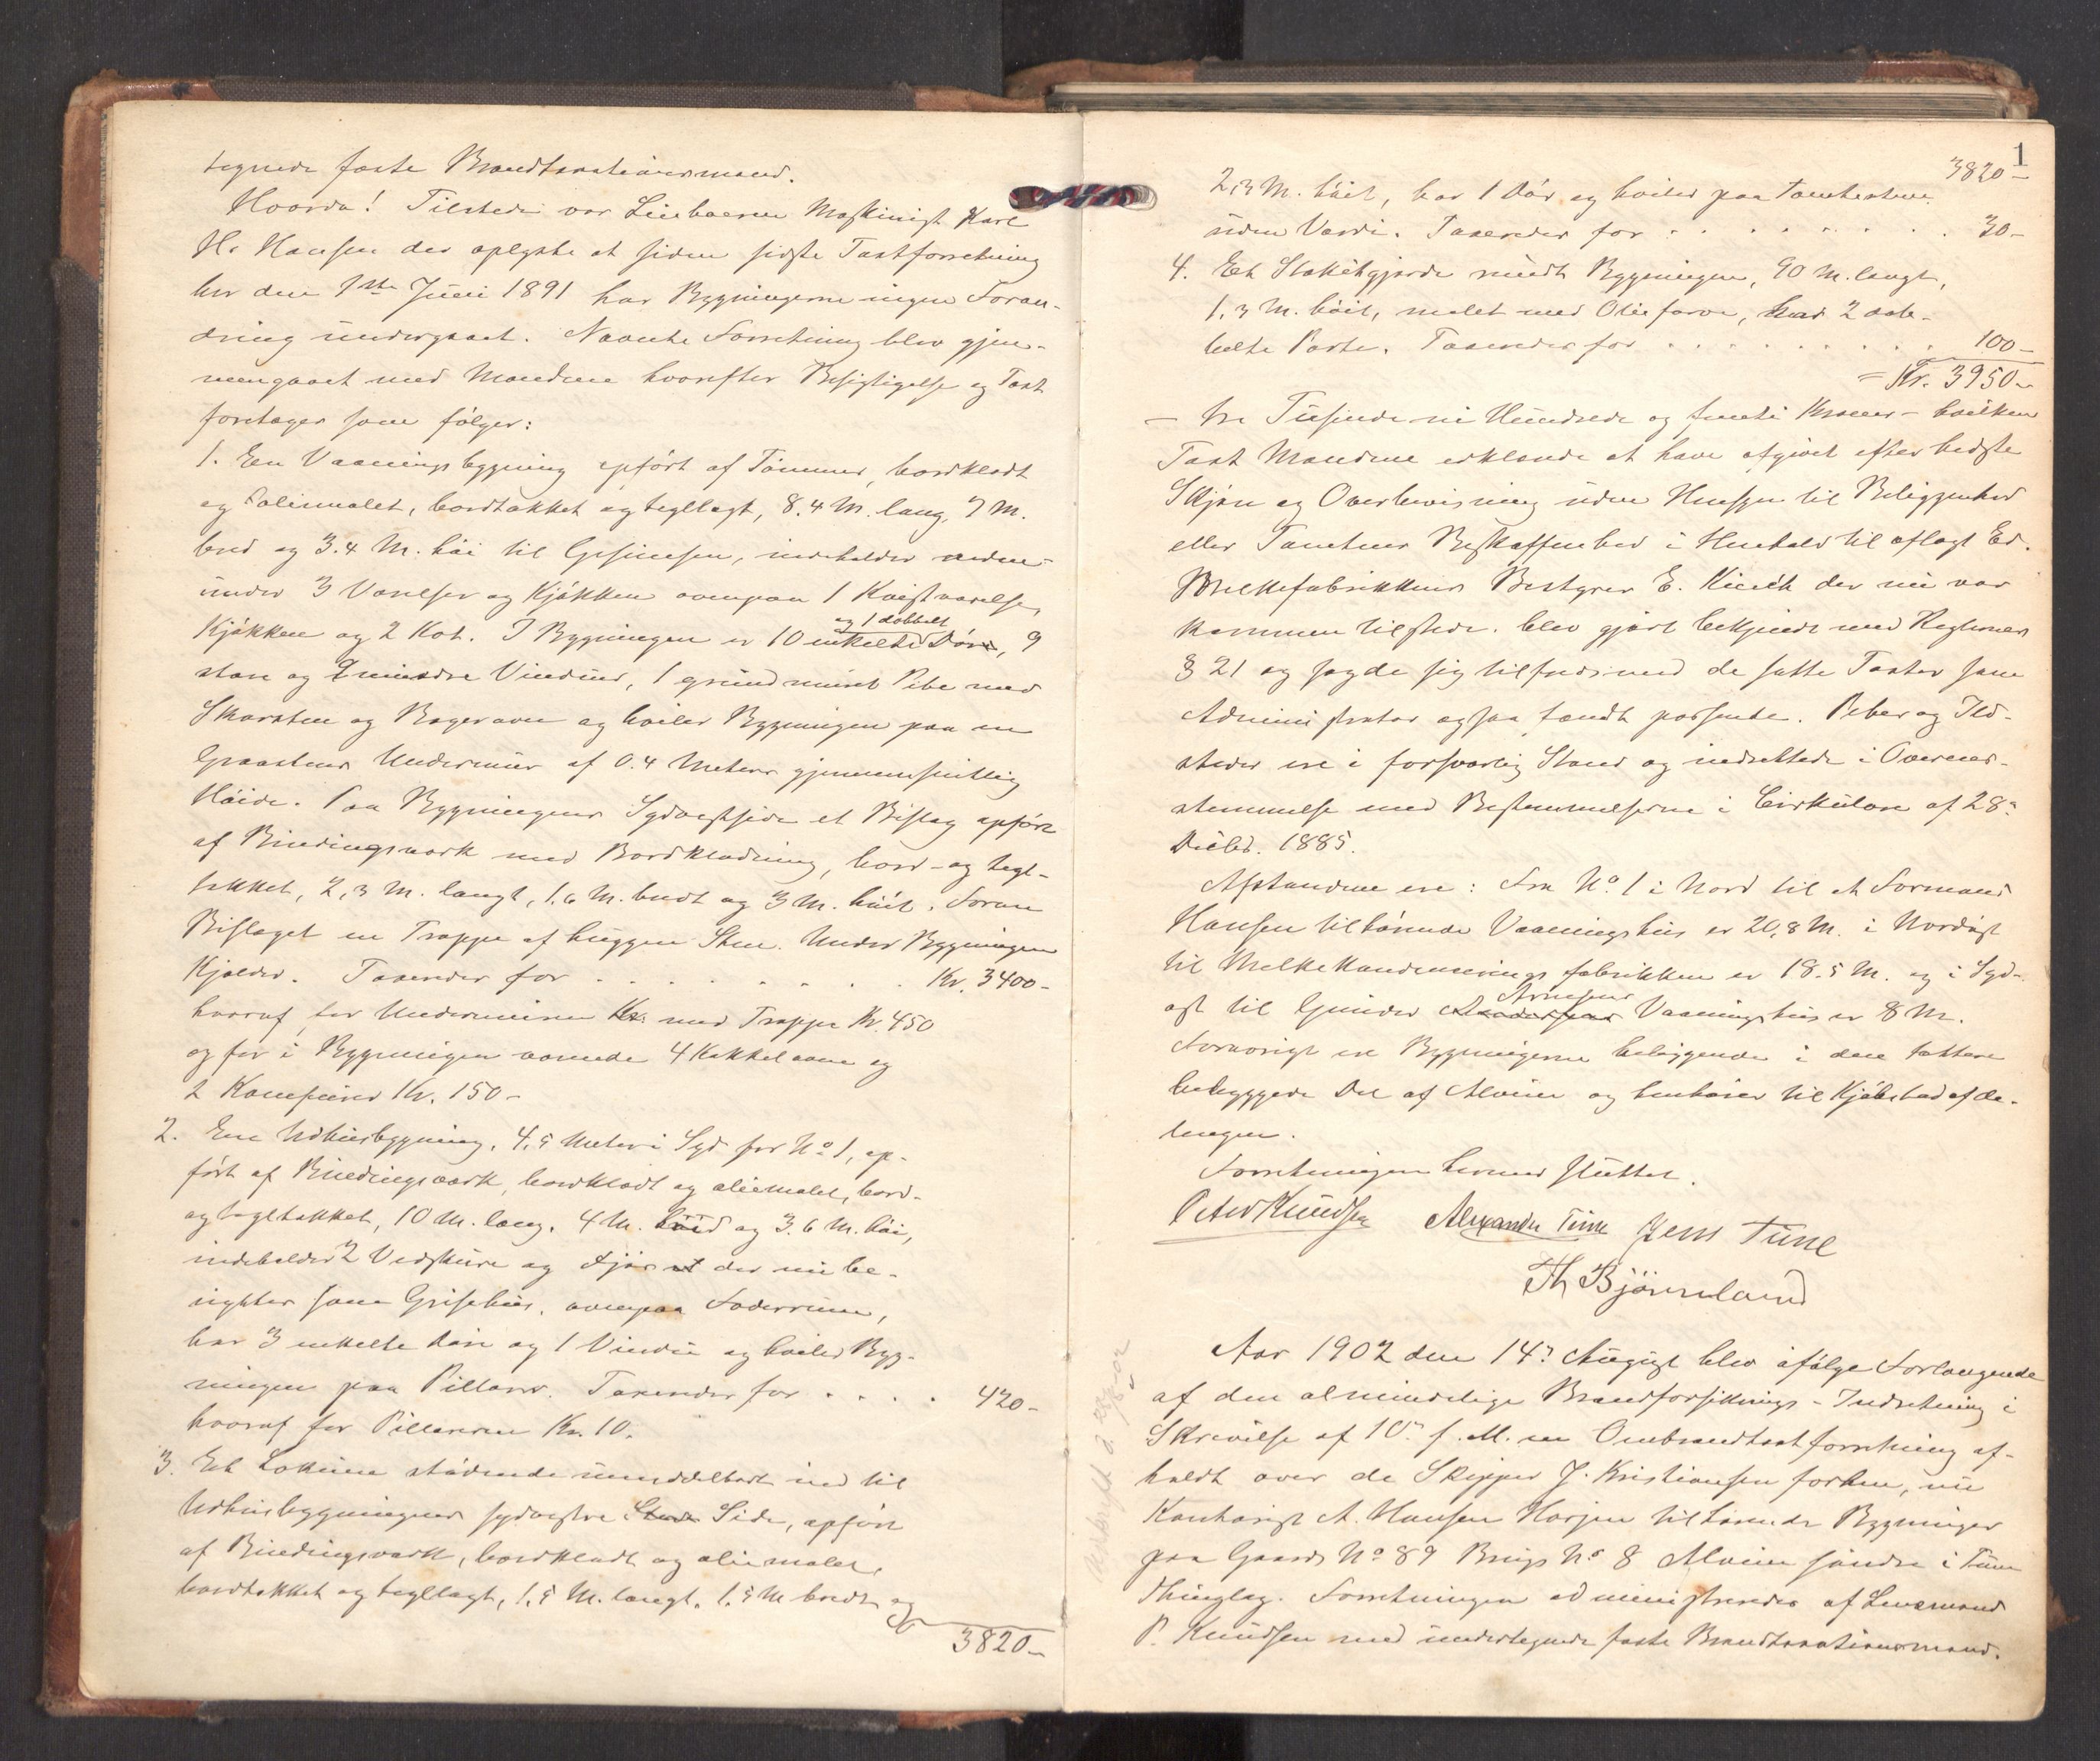 tegnede faste Brandtaxationsmænd.
Hvorda! Tilstede var Leieboeren Maskinist Karl
H. Hansen der oplyste at siden sidste Taxtforretning
her den 1ste Juni 1891 har Bygningerne ingen Foran-
dring undergaaet. Nævnte Forretning blev gjen-
nemgaaet med Mændene hvorefter Besigtigelse og Taxt
foretages som følger:
1. En Vaaningsbygning opført af Tømmer, bordklædt
og oliemalet, bordtækket og tegllagt, 8.4 M. lang, 7 M.
bred og 3.4 M. høi til Gesimsen, indeholder neden-
under 3 Værelser og Kjøkken ovenpaa 1 Kvistværelse,
Kjøkken og 2 Kot. I Bygningen er 10 enkelte og 1 dobbelt Døre, 9
store og 2 mindre Vinduer, 1 grundmuret Pibe med
Skorsten og Bagerovn og hviler Bygningen paa en
Graastens Undermur af 0.4 Meters gjennemsnitlig
Høide. Paa Bygningens Sydvestside et Bislag opført
af Bindingsværk med Bordklædning, bord- og tegl-
tækket, 2,3 M. langt, 1.6 M. bredt og 3 M. høit. Foran
Bislaget en Trappe af huggen Sten. Under Bygningen
Kjælder. Taxeredes for . . . . . . . . . Kr. 3400-
hvoraf for Undermuren Kr. med Trappe Kr. 450
og for i Bygningen værende 4 Kakkelovne og
2 Komfurer Kr. 150-
2. En Udhusbygning, 4,5 Meter i Syd for No 1, op-
ført af Bindingsværk, bordklædt og oliemalet, bord-
og tegltækket, 10 M. lang, 4 M. bred og 3.6 M. høi,
indeholder 2 Vedskure og Fjøs der nu be-
nyttes som Grisehus, ovenpaa Foderrum,
har 3 enkelte Døre og 1 Vindu og hviler Byg-
ningen paa Pillarer. Taxeredes for . . . . 420-
hvoraf for Pillarerne Kr. 10.
3. Et Lokum stødende umiddelbart ind til
Udhusbygningens sydvestre Side, opført
af Bindingsværk, bordklædt og oliemalet,
bordtækket og tegllagt, 1,5 M. langt, 1.5 M bredt og
3820-
1
3820-
2,3 M. høit, har 1 Dør og hviler paa Tomtestene
uden Værdi. Taxeredes for . . . . . . . . . 30-
4. Et Stakitgjærde rundt Bygningen, 90 M. langt,
1,3 M. høit, malet med Oliefarve, har 2 dob-
belte Porte. Taxeredes for . . . . . . . . . 100-
= Kr. 3950-
- tre Tusinde ni Hundrede og femti Kroner - hvilken
Taxt Mændene erklærede at have afgivet efter bedste
Skjøn og Overbevisning uden Hensyn til Beliggenhed
eller Tomtens Beskaffenhed i Henhold til aflagt Ed.
Melkefabrikkens Bestyrer E. der nu var
kommen tilstede, blev gjort bekjendt med Reglernes
§ 21 og sagde sig tilfreds med de satte Taxter som
Administrator ogsaa fandt passende. Piber og Ild-
steder ere i forsvarlig Stand og indrettede i Overens-
stemmelse med Bestemmelserne i Cirkulære af 28:
Decbr. 1885.
Afstandene ere: Fra No. 1 i Nord til A Formand
Hansen tilhørende Vaaningshus er 20,8 M. i Nordøst
til Melkekondenseringsfabrikken er 18.5 M. og i Syd-
øst til Gunder Arnesens Vaaningshus er 8 M.
Forøvrigt ere Bygningerne beliggende i den tættere
bebyggede Del af Alvim og henhører til Kjøbstadafde-
lingen.
Forretningen hermed sluttet.
Peter Knudsen Alexander Tune Jens Tune
Th Bjørnland
Aar 1902 den 14: August blev ifølge Forlangende
af den almindelige Brandforsikrings-Indretning i
Skrivelse af 10: f. M. en Ombrandtaxtforretning af-
holdt over de Skipper J. Kristiansen forhen, nu
Kontorist A. Hansen Horjen tilhørende Bygninger
paa Gaards No 89 Brugs No 8 Alvim søndre i Tune
Thinglag. Forretningen administreredes af Lensmand
P. Knudsen med undertegnede faste Brandtaxationsmænd.